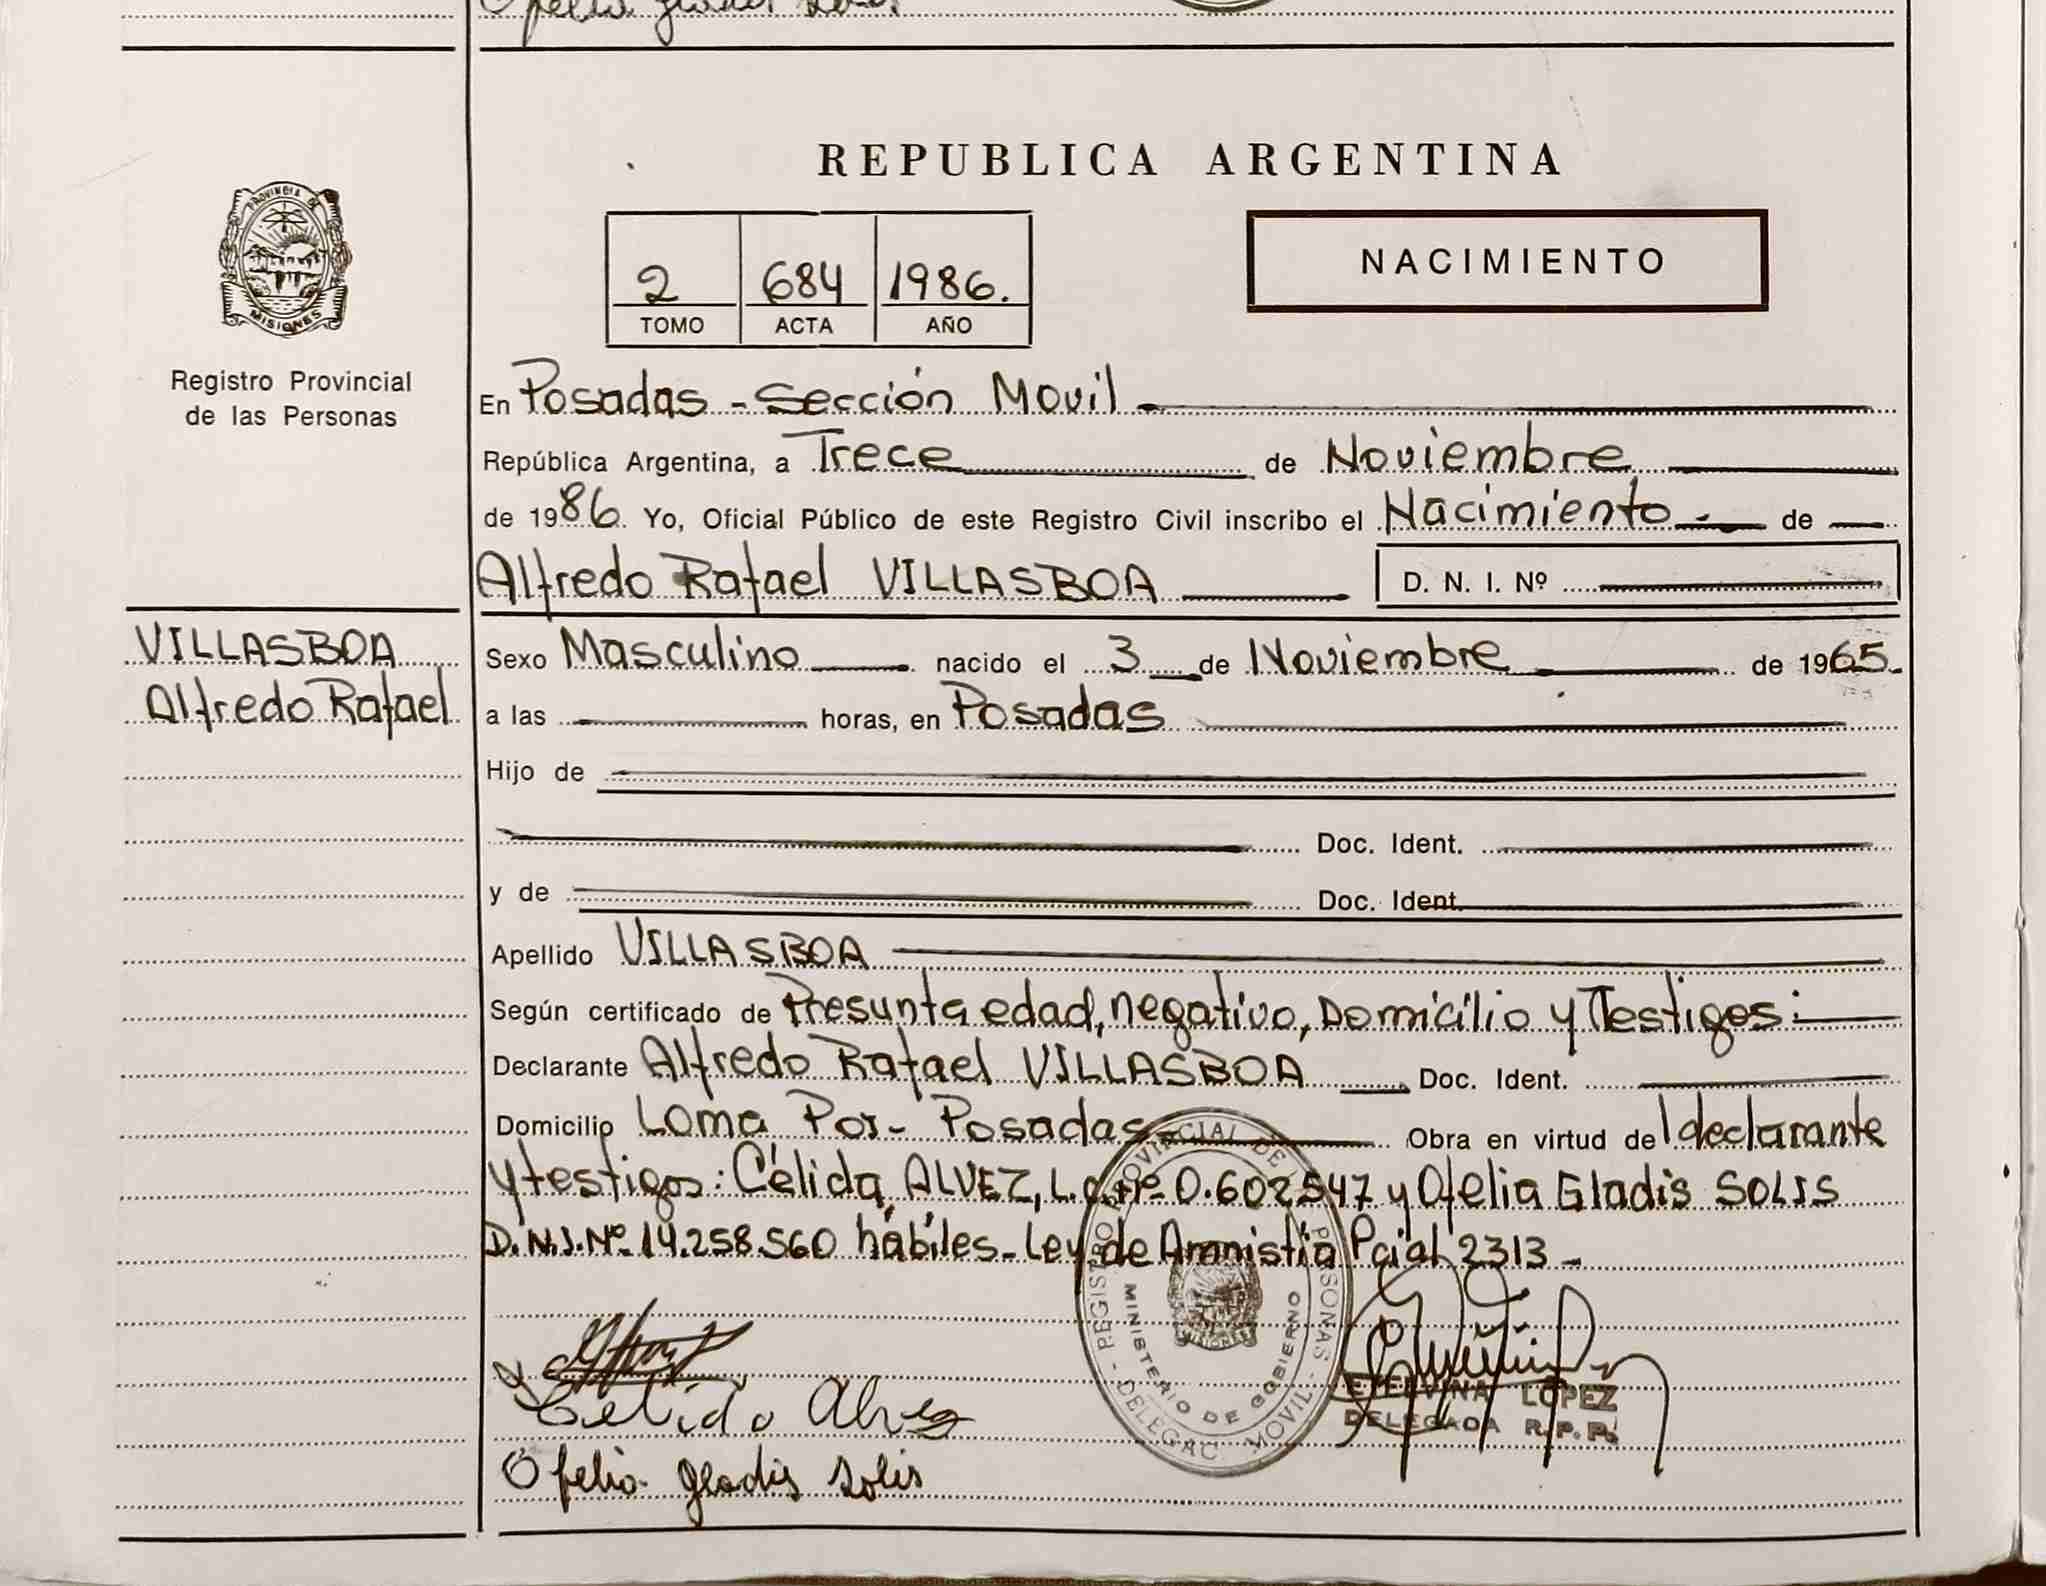 Ofelia Gladis Solis
PROVINCIA DE
MISIONES
Registro Provincial
de las Personas
REPUBLICA ARGENTINA
2 684 1986.
TOMO ACTA AÑO
NACIMIENTO
En Posadas - Sección Movil
República Argentina, a Trece de Noviembre
de 1986. Yo, Oficial Público de este Registro Civil inscribo el Nacimiento de
Alfredo Rafael VILLASBOA D. N. I. Nº
VILLASBOA
Alfredo Rafael
Sexo Masculino nacido el 3 de Noviembre de 1965.
a las horas, en Posadas
Hijo de
Doc. Ident.
y de Doc. Ident.
Apellido VILLASBOA
Según certificado de Presunta edad, negativo, Domicilio y Testigos:
Declarante Alfredo Rafael VILLASBOA Doc. Ident.
Domicilio Loma Poi - Posadas Obra en virtud de l declarante
y testigos: Célida ALVEZ, L.C. Nº 0.602.547 y Ofelia Gladis SOLIS
D.N.I. Nº 14.258.560 hábiles - Ley de Amnistía Pcial 2313 -
REGISTRO PROVINCIAL DE L PERSONAS - DELEGAC. MOVIL -
MINISTERIO DE GOBIERNO
MISIONES
Celida Alvez
Ofelia Gladis Solis
LOPEZ
DELEGADA R. P. P.